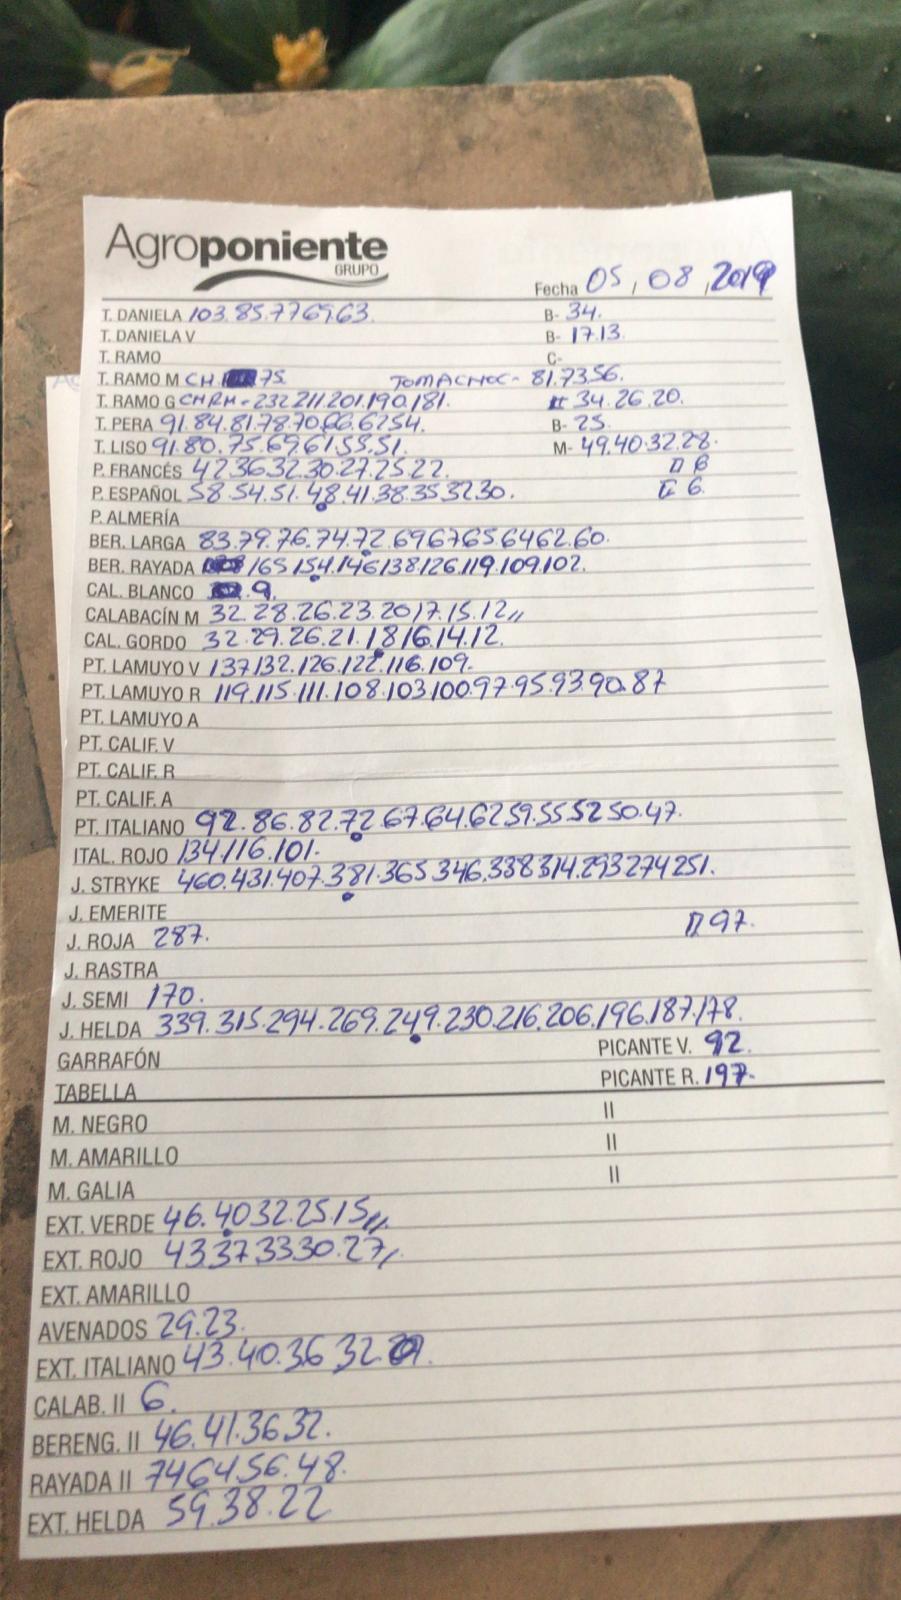 Agroponiente
GRUPO
Fecha 05, 08, 2019
T. DANIELA 103.85.77.69.63. B- 34.
T. DANIELA V B- 17.13.
T. RAMO C-
T. RAMO M CH 75 TOMACHOC- 81.73.56.
T. RAMO G CHRM-232 211.201.190.181. II 34.26.20.
T. PERA 91.84.81.78.70.66.62.54. B- 25.
T. LISO 91.80.75.69.61.55.51. M- 49.40.32.28.
P. FRANCÉS 42.36.32.30.27.25.22. II 8
P. ESPAÑOL 58.54.51.48.41.38.35.32.30. II 6.
P. ALMERÍA
BER. LARGA 83.79.76.74.72.69.67.65.64.62.60.
BER. RAYADA 165 154.146 138.126.119.109.102.
CAL. BLANCO .9.
CALABACÍN M 32.28.26.23.20.17.15.12,,
CAL. GORDO 32.29.26.21.18.16.14.12.
PT. LAMUYO V 137.132.126.122.116.109.
PT. LAMUYO R 119.115.111.108.103.100.97.95.93.90.87
PT. LAMUYO A
PT. CALIF. V
PT. CALIF. R
PT. CALIF. A
PT. ITALIANO 92.86.82.72.67.64.62.59.55.52.50.47.
ITAL. ROJO 134.116.101.
J. STRYKE 460.431.407.381.365 346.338 314.293 274 251.
J. EMERITE
J. ROJA 287. II 97.
J. RASTRA
J. SEMI 170.
J. HELDA 339.315.294.269.249.230.216.206.196.187.178.
GARRAFÓN PICANTE V. 92.
TABELLA PICANTE R. 197.
M. NEGRO II
M. AMARILLO II
M. GALIA II
EXT. VERDE 46.40.32.25.15,,
EXT. ROJO 43.37.33.30.27,,
EXT. AMARILLO
AVENADOS 29.23.
EXT. ITALIANO 43.40.36 32.
CALAB. II 6.
BERENG. II 46.41.36.32.
RAYADA II 74.64.56.48.
EXT. HELDA 59.38.22